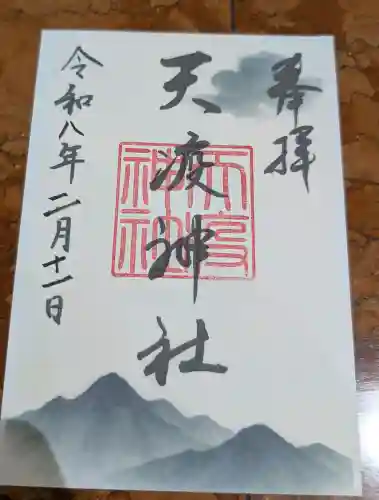 奉拝
天疫神社
天疫神社
令和八年二月十一日